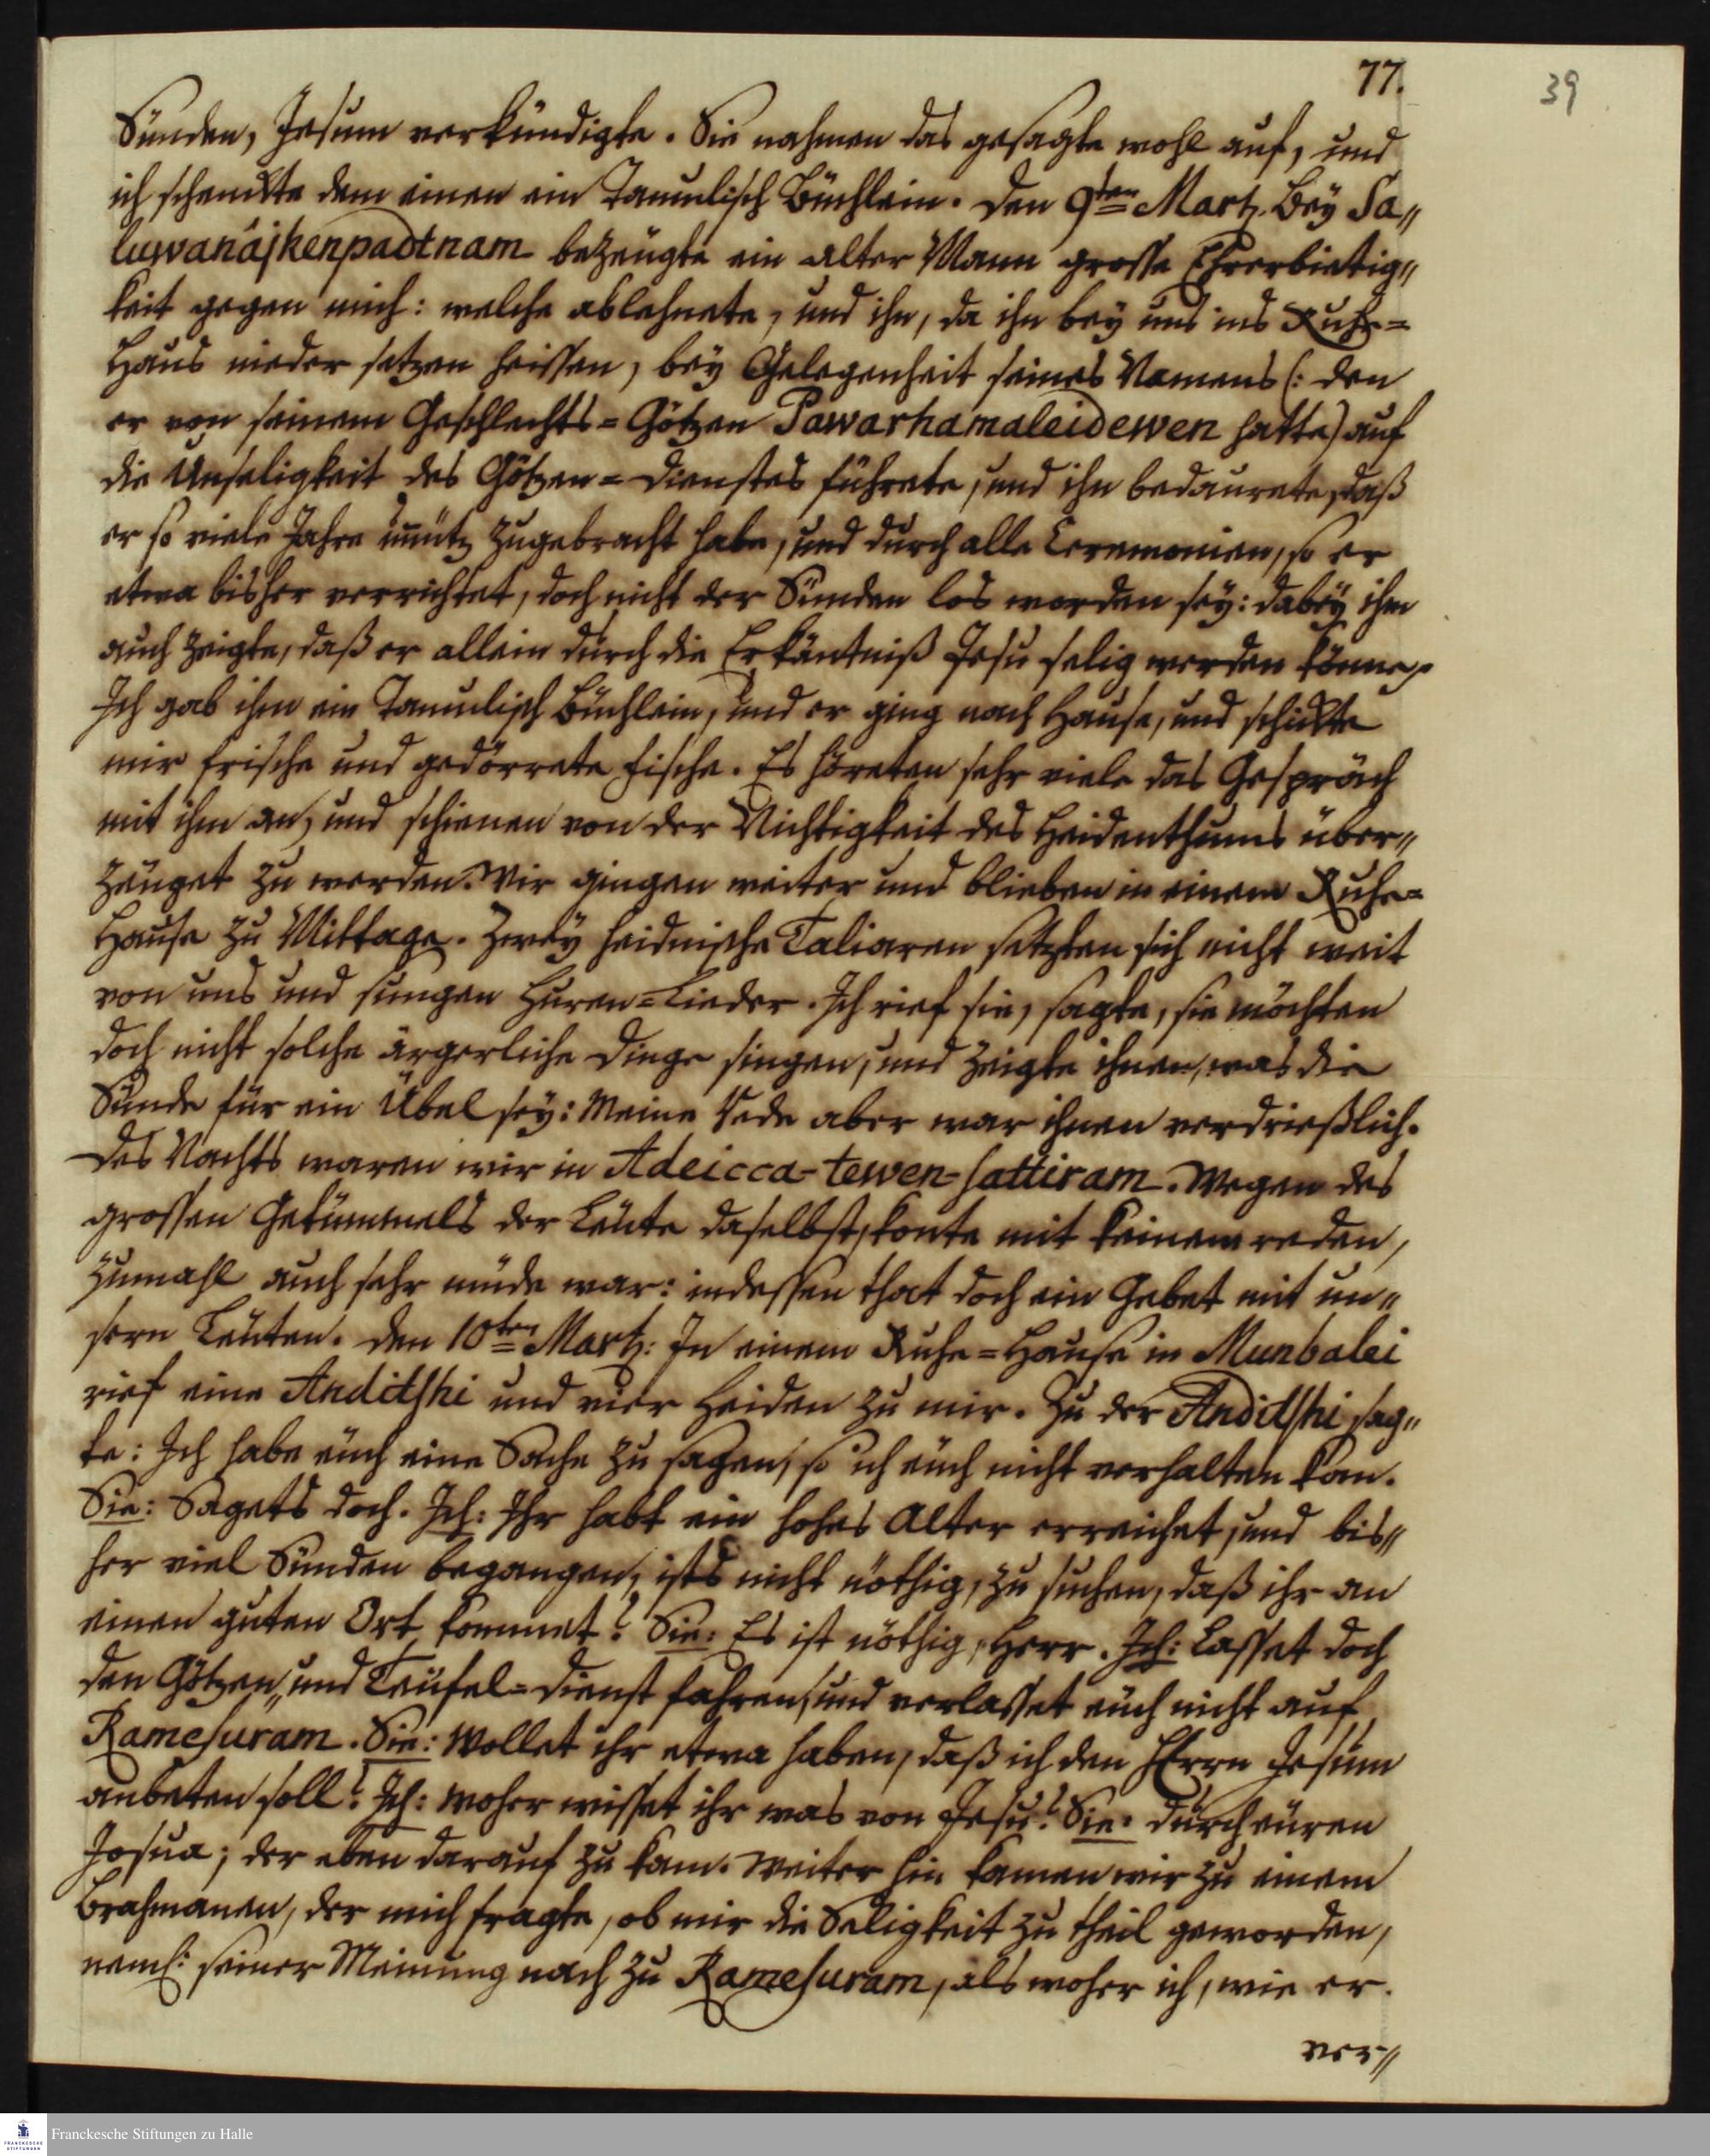 77.
39
Sünden, Jesum verkündigte. Sie nahmen das gesagte wohl auf, und
ich schenckte dem einen ein Tamulisch Büchlein. Den 9ten Martz. Bey Sa„
luwanâjkenpadtnam bezeugte ein alter Mann grosse Ehrerbietig„
keit gegen mich: welche ablehnete, und ihn, da ihn bey uns ins Ruhe=
Haus nieder setzen heissen, bey Gelegenheit seines Namens (: den
er von seinem Geschlechts=Götzen Pawarhamaleidewen hatte) auf
die Unseligkeit des Götzen=Dienstes führete, und ihn bedaurete, daß
er so viele Jahre unnütz zugebracht habe, und durch alle Ceremonien, so er
etwa bisher verrichtet, doch nicht der Sünden los worden sey: dabey ihm
auch zeigte, daß er allein durch die Erkäntniß Jesu selig werden könne.
Ich gab ihm ein Tamulisch Büchlein, und er ging nach Hause, und schickte
mir frische und gedörrete Fische. Es höreten sehr viele das Gespräch
mit ihm an, und schienen von der Nichtigkeit des Heidenthums über„
zeuget zu werden. Wir gingen weiter und blieben in einem Ruhe=
Hause zu Mittage. Zwey heidnische Taliaren setzten sich nicht weit
von uns und sungen Huren=Lieder. Ich rief sie, sagte, sie möchten
doch nicht solche ärgerliche Dinge singen, und zeigte ihnen, was die
Sünde für ein Übel sey: Meine Rede aber war ihnen verdrießlich.
Des Nachts waren wir in Adeicca-tewen-sattiram. Wegen des
grossen Getümmels der Leute daselbst, konte mit keinem reden,
zumahl auch sehr müde war: indessen that doch ein Gebet mit un„
sern Leuten. Den 10ten Martz: In einem Ruhe=Hause in Munbalei
rief eine Anditshi und vier Heiden zu mir. Zu der Anditshi sag„
te: Ich habe euch eine Sache zu sagen, so ich euch nicht verhalten kan.
Sie: Sagets doch. Ich: Ihr habt ein hohes Alter erreichet, und bis„
her viel Sünden begangen, ists nicht nöthig, zu suchen, daß ihr an
einen guten Ort kommet? Sie: Es ist nöthig, Herr. Ich: Lasset doch
den Götzen„ und Teufel=Dienst fahren, und verlasset euch nicht auf
Ramesuram. Sie: Wollet ihr etwa haben, daß ich den HErrn Jesum
anbeten soll? Ich: Woher wisset ihr was von Jesu? Sie: Durch euren
Josua; der eben darauf zu kam. Weiter hin kamen wir zu einem
Brahmanen, der mich fragte, ob mir die Seligkeit zu theil geworden,
neml: seiner Meinung nach zu Ramesuram, als woher ich, wie er
ver„
FRANCKESCHE STIFTUNGEN
Franckesche Stiftungen zu Halle